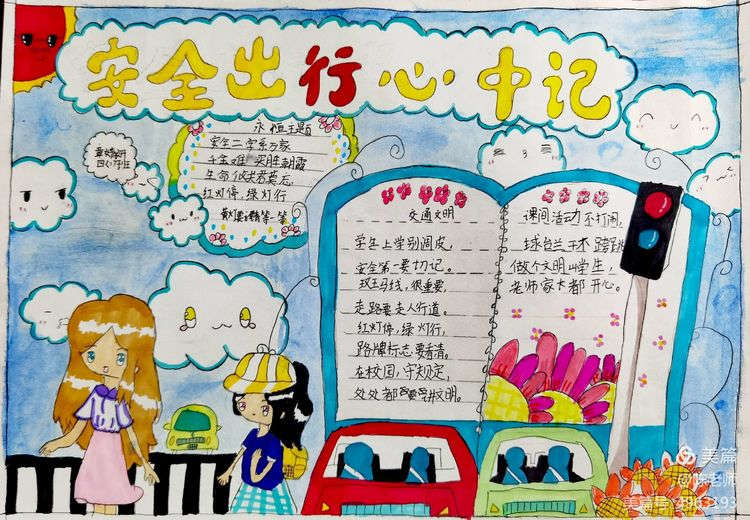 安全出行心中记
永恒主题
安全二字系万家
千金难买胜朝霞
红灯停,绿灯行
交通文明
学生上学别调皮,
安全第一要切记。
斑马线,很重要,
走路要走人行道。
红灯停,绿灯行,
路牌标志要看清。
在校园,守规定,
处处都要讲文明。
课间活动不打闹,
做个文明小学生,
老师家长都开心。
美篇
@陈老师
美篇号